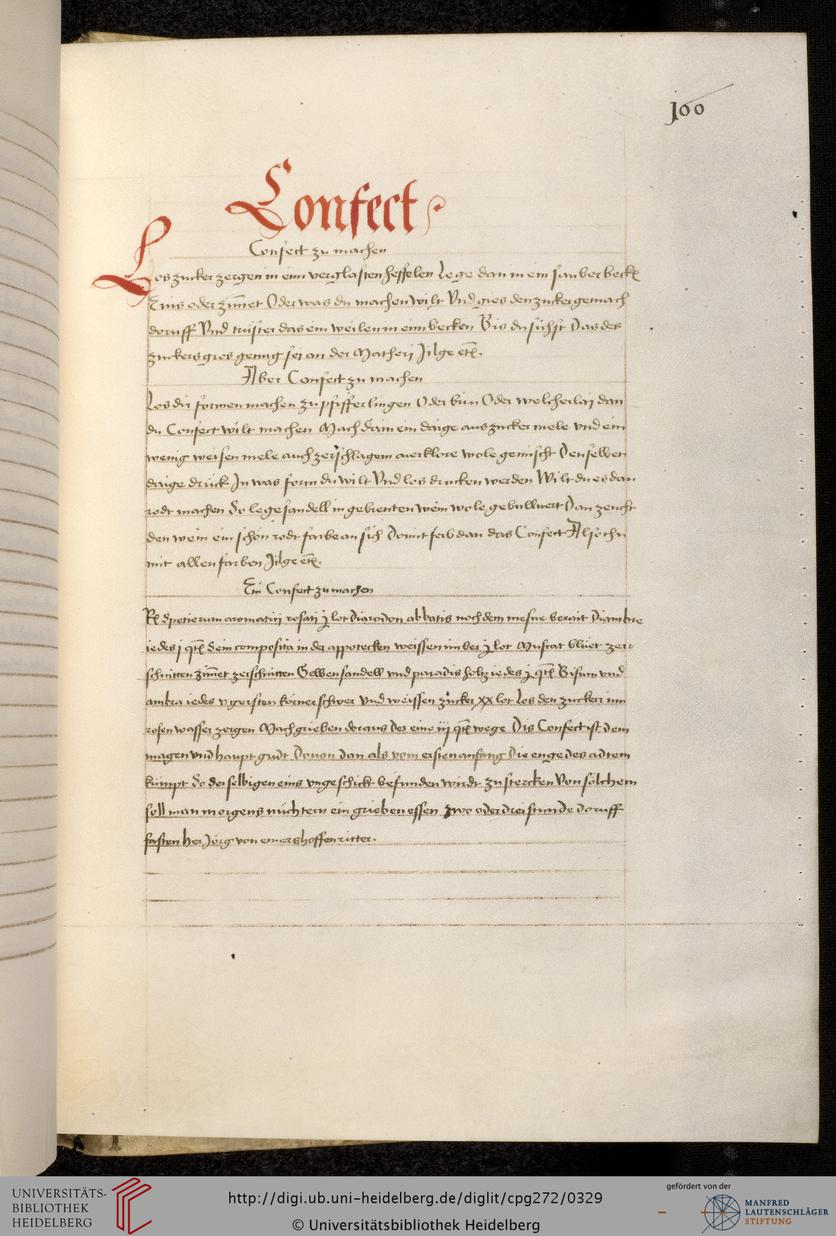 100
Confect
Confect zu machen
Los zucker zergen in eim verglasten heffelen lege dan in ein sauber beck
Enis oder zimet Oder was du machen wilt Vnd gies den zucker gemach
doruff Vnd rüster das ein weilen in eim becken Bis du sihst Das des
zuckers gnug sei an der Matheri Jilge etc.
Aber Confect zu machen
Los dir formen machen zu pfifferlingen Oder birn Oder welcherlai dan
du Confect wilt machen Mach drein ein daige aus zucker mele vnd ein
wenig weisen mele auch zerschlagem aierklore wole gemischt Denselben
daige druck In was form du wilt Vnd los drucken werden Wilt du es dan
rodt machen So lege sandell in gebrenten wein wole gebulluert Dan zeucht
den wein ein schön rodt farbe an sich Domit ferb dan das Confect Also thu
mit allen farben Jilge etc.
Ein Confect zu machen
Rx Specierum aromatici rosati j lot Diarodon abbatis noch dem mesue berait Diambre
iedes j qtl dein composita in der appotecken weissen imber j lot Muscat bluet zer
schnitten zimet zerschnitten Gelben sandell vnd paradis holz iedes j qtl Bisum vnd
ambra iedes v gersten körner schwer Vnd weissen zucker xx lot Los den zucker im
rosen wasser zergen Mach grieben doraus der eine iij qtl wege Dis Confect ist dem
magen vnd haupt gudt Douon dan als vom ersten anfang Die enge des adtem
kümpt So der selbigen eins vngeschickt befunden wirdt zu stercken Von sölchem
soll man morgens nüchtern ein grieben essen zwo oder drei stunde doruff
fasten her Jörg von emershoffen ritter.
UNIVERSITÄTS-
BIBLIOTHEK
HEIDELBERG
http://digi.ub.uni-heidelberg.de/diglit/cpg272/0329
© Universitätsbibliothek Heidelberg
gefördert von der
MANFRED
LAUTENSCHLÄGER
STIFTUNG